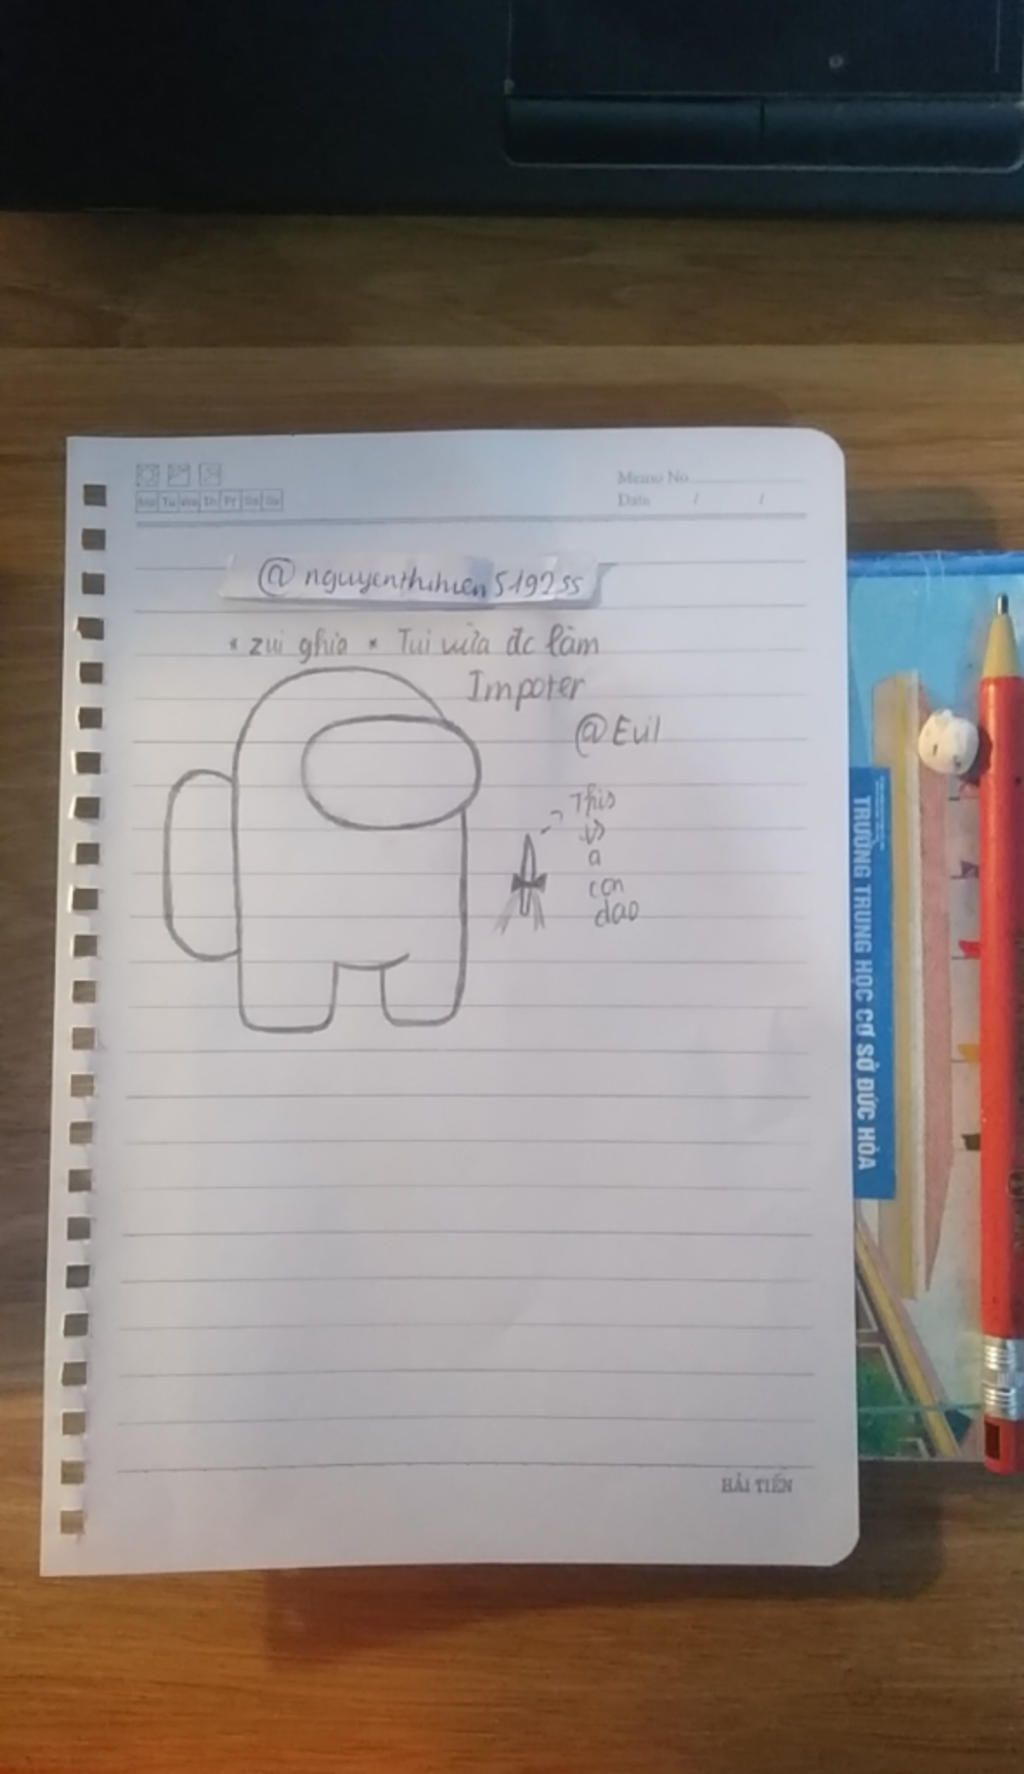 Mo Tu We Th Fr Sa Su
Memo No.
Date / /
@nguyenthihien5192ss
* zui ghia * Tui vừa đc làm
Impoter
@Evil
This
is
a
con
dao
TRƯỜNG TRUNG HỌC CƠ SỞ ĐỨC HÒA
HẢI TIẾN